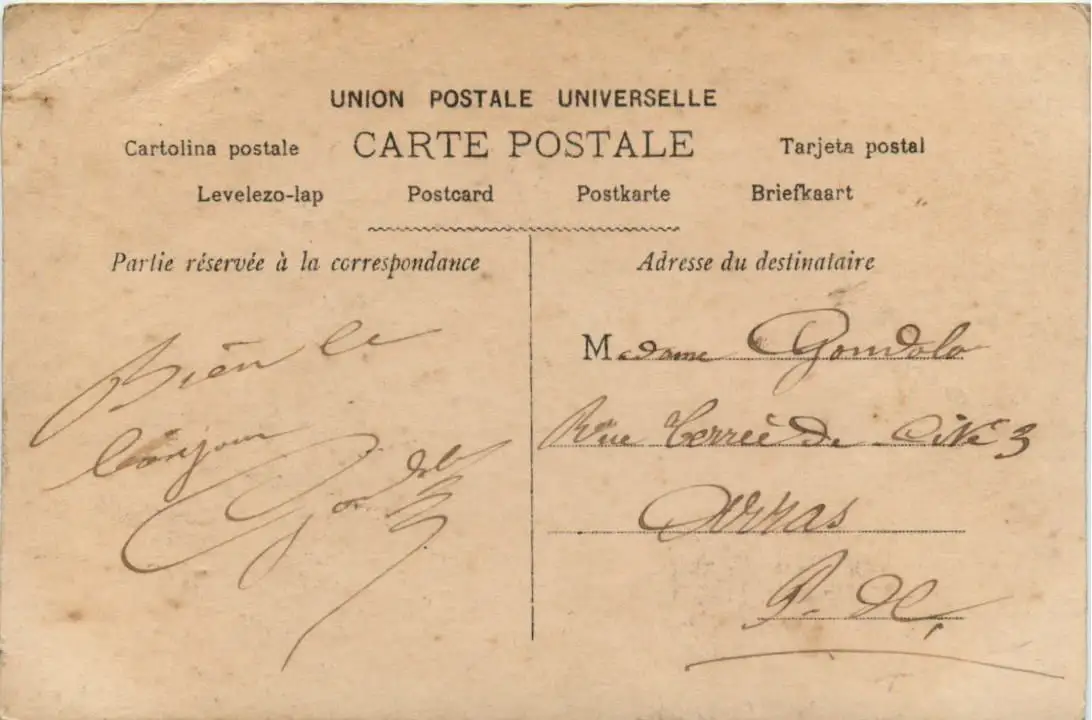 UNION POSTALE UNIVERSELLE
Cartolina postale CARTE POSTALE Tarjeta postal
Levelezo-lap Postcard Postkarte Briefkaart
Partie réservée à la correspondance
Bien le
bonjour
Gondolo
Adresse du destinataire
Madame Gondolo
Rue Terrée de Cité 3
Arras
P. de C,